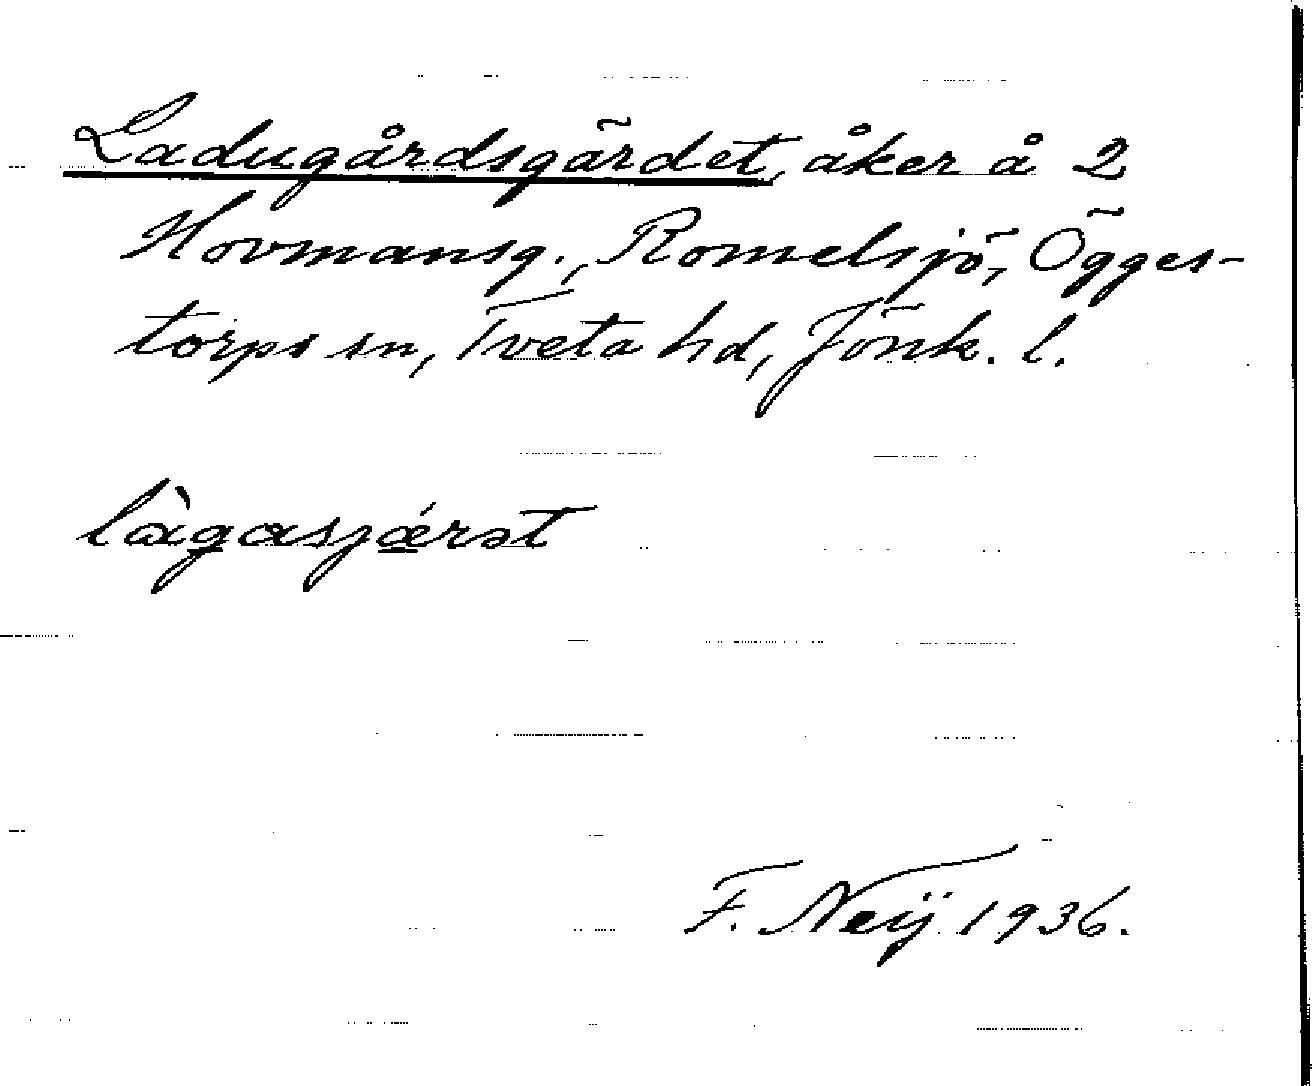 Ladugårdsgärdet, åker å 2
Hovmansg., Romelsjö, Ögges-
torps sn, Tveta hd, Jönk. l.
làgasjǽrət
F. Neij 1936.